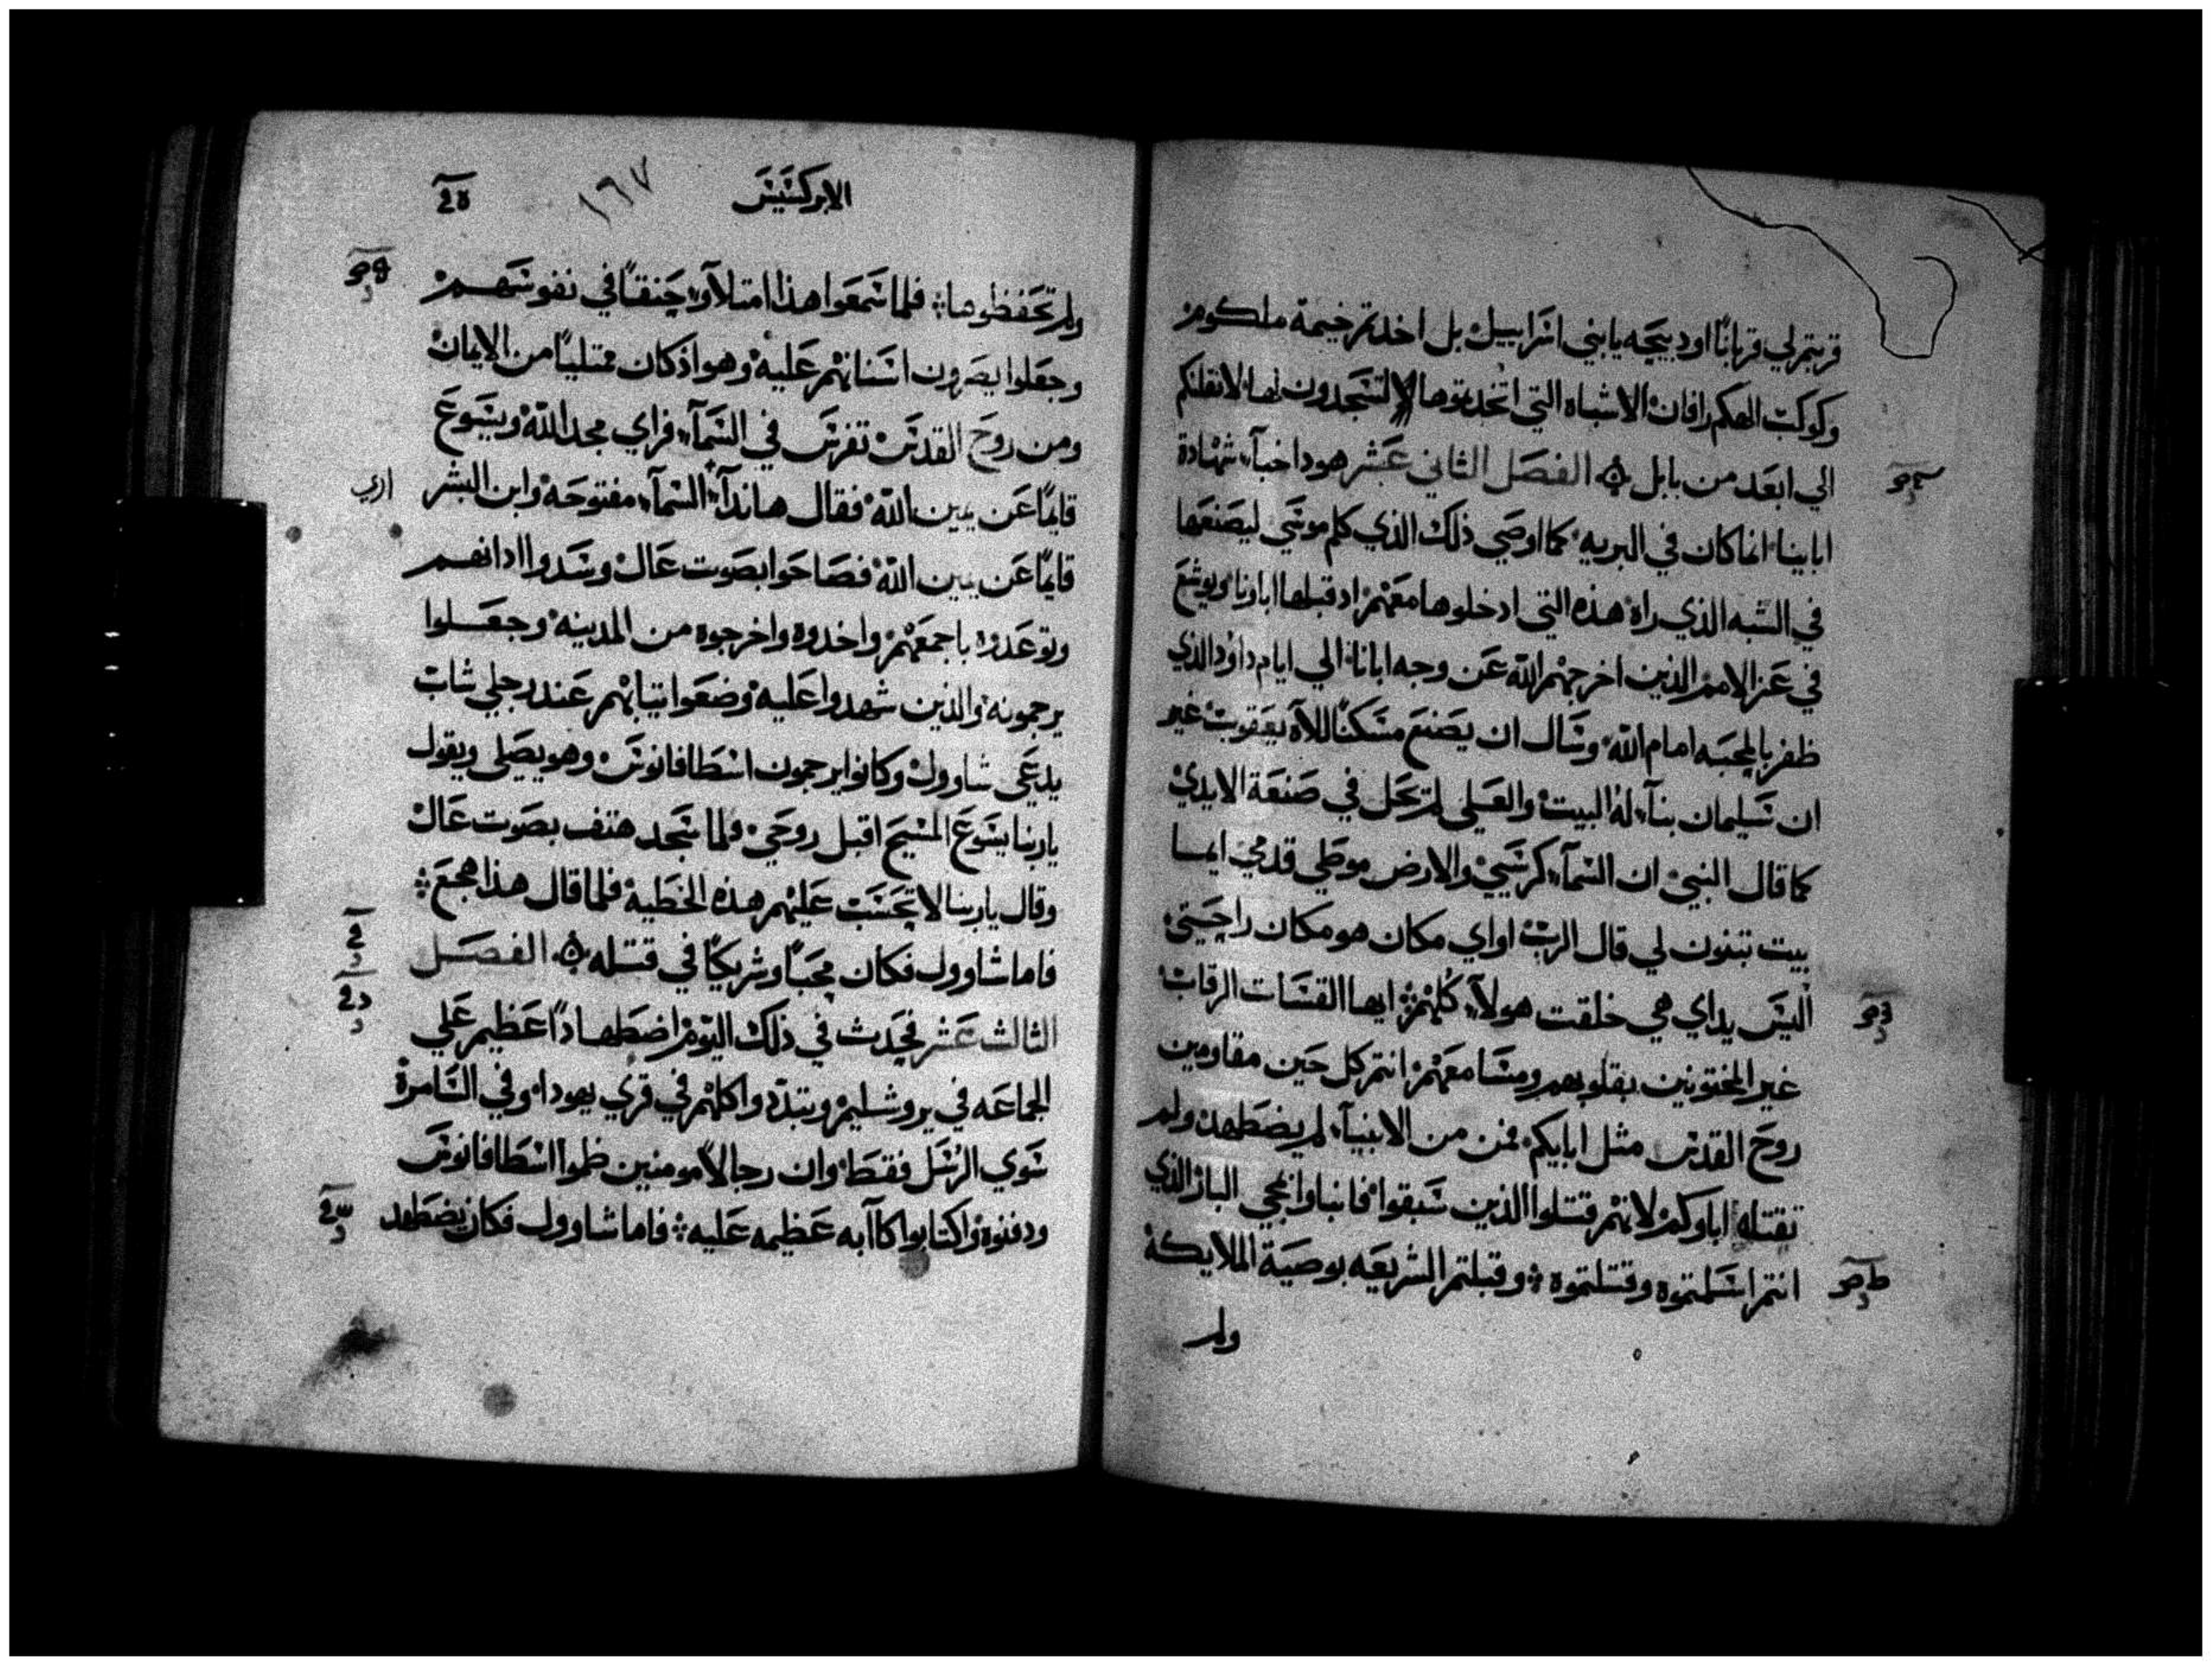 قربتم لي قربانًا او دبيحه يابني اسراييل بل اخدتم خيمة ملكوم
وكوكب الهكم رافان الاشباه التي اتخدتموها لتسجدون لها لانقلنكم
الي ابعد من بابل الفصل الثاني عشر هودا خبآ شهادة
ابهاينا انما كان في البريه كما اوصي ذلك الذي كلم موسي ليصنعها
في الشبه الذي راه هذه التي ادخلوها معهم اد قبلها اباونا ويوشع
في عز الامم الذين اخرجهم الله عن وجه ابانا الي ايام داود الذي
ظفر بالمحبه امام الله وسال ان يصنع مسكنًا للاه يعقوب غير
ان سليمان بنآ له البيت والعلي لم تحل في صنعة الايدي
كما قال النبي ان السمآ كرسيي والارض موطي قدمي ايما
بيت تبنون لي قال الرب او اي مكان هو مكان راحيتي
اليس يداي هي خلقت هولآ كلهم ايها القساة الرقاب
غير المختونين بقلوبهم ومسامعهم انتم كل حين مقاومين
روح القدس مثل ابايكم فمن من الانبيآ لم يضطهد ولم
تقتله اباوكم لانهم قتلوا الذين سبقوا فانباوا بمجي البار الذي
انتم اسلمتموه وقتلتموه وقبلتم الشريعه بوصية الملايكة
ولم
الابركسيس
١٦٧
ولم تحفظوها فلما سمعوا هذا امتلآو حنقًا في نفوسهم
وجعلوا يصرون اسنانهم عليه وهو اذ كان ممتليًا من الايمان
ومن روح القدس تفرس في السمآ فراي مجد الله ويسوع
قايمًا عن يمين الله فقال هاندا السمآ مفتوحه وابن البشر
اري
قايمًا عن يمين الله فصاحوا بصوت عال وسدوا ادانهم
وتوعدوه باجمعهم واخدوه واخرجوه من المدينه وجعلوا
يرجمونه والذين شهدوا عليه وضعوا تيابهم عند رجلي شاب
يدعي شاوول وكانوا يرجمون اسطافانوس وهو يصلي ويقول
ياربنا يسوع المسيح اقبل روحي ولما سجد هتف بصوت عال
وقال ياربنا لا تحسب عليهم هذه الخطيه فلما قال هذا هجع
فاما شاوول فكان محبًا وشريكًا في قتله الفصل
الثالث عشر فحدث في ذلك اليوم اضطهادًا عظيم علي
الجماعه في يروشليم وتبددوا كلهم في قري يهودا وفي السامرة
سوي الرسل فقط وان رجالاً مومنين ظموا اسطافانوس
ودفنوه واكتابوا كاآبه عظيمه عليه فاما شاوول فكان يضطهد